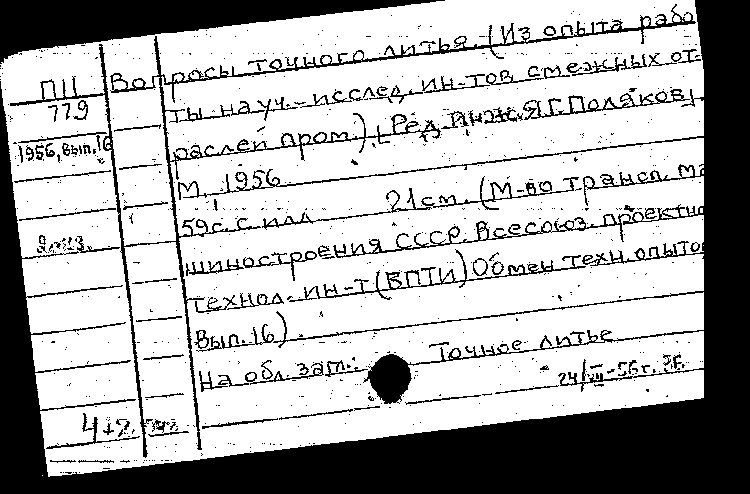 П11
779
1956, вып.16
2 экз.
Вопросы точного литья. (Из опыта рабо
ты науч.-исслед. ин-тов смежных от-
раслей пром.) [Ред. инж. Я.Г. Поляков].
М, 1956
59 с. с илл 21 см. (М-во трансп. ма
шиностроения СССР. Всесоюз. проектно
технол. ин-т (ВПТИ) Обмен техн. опытом
Вып. 16).
На обл. загл.: Точное литье
24/VII-56 г.